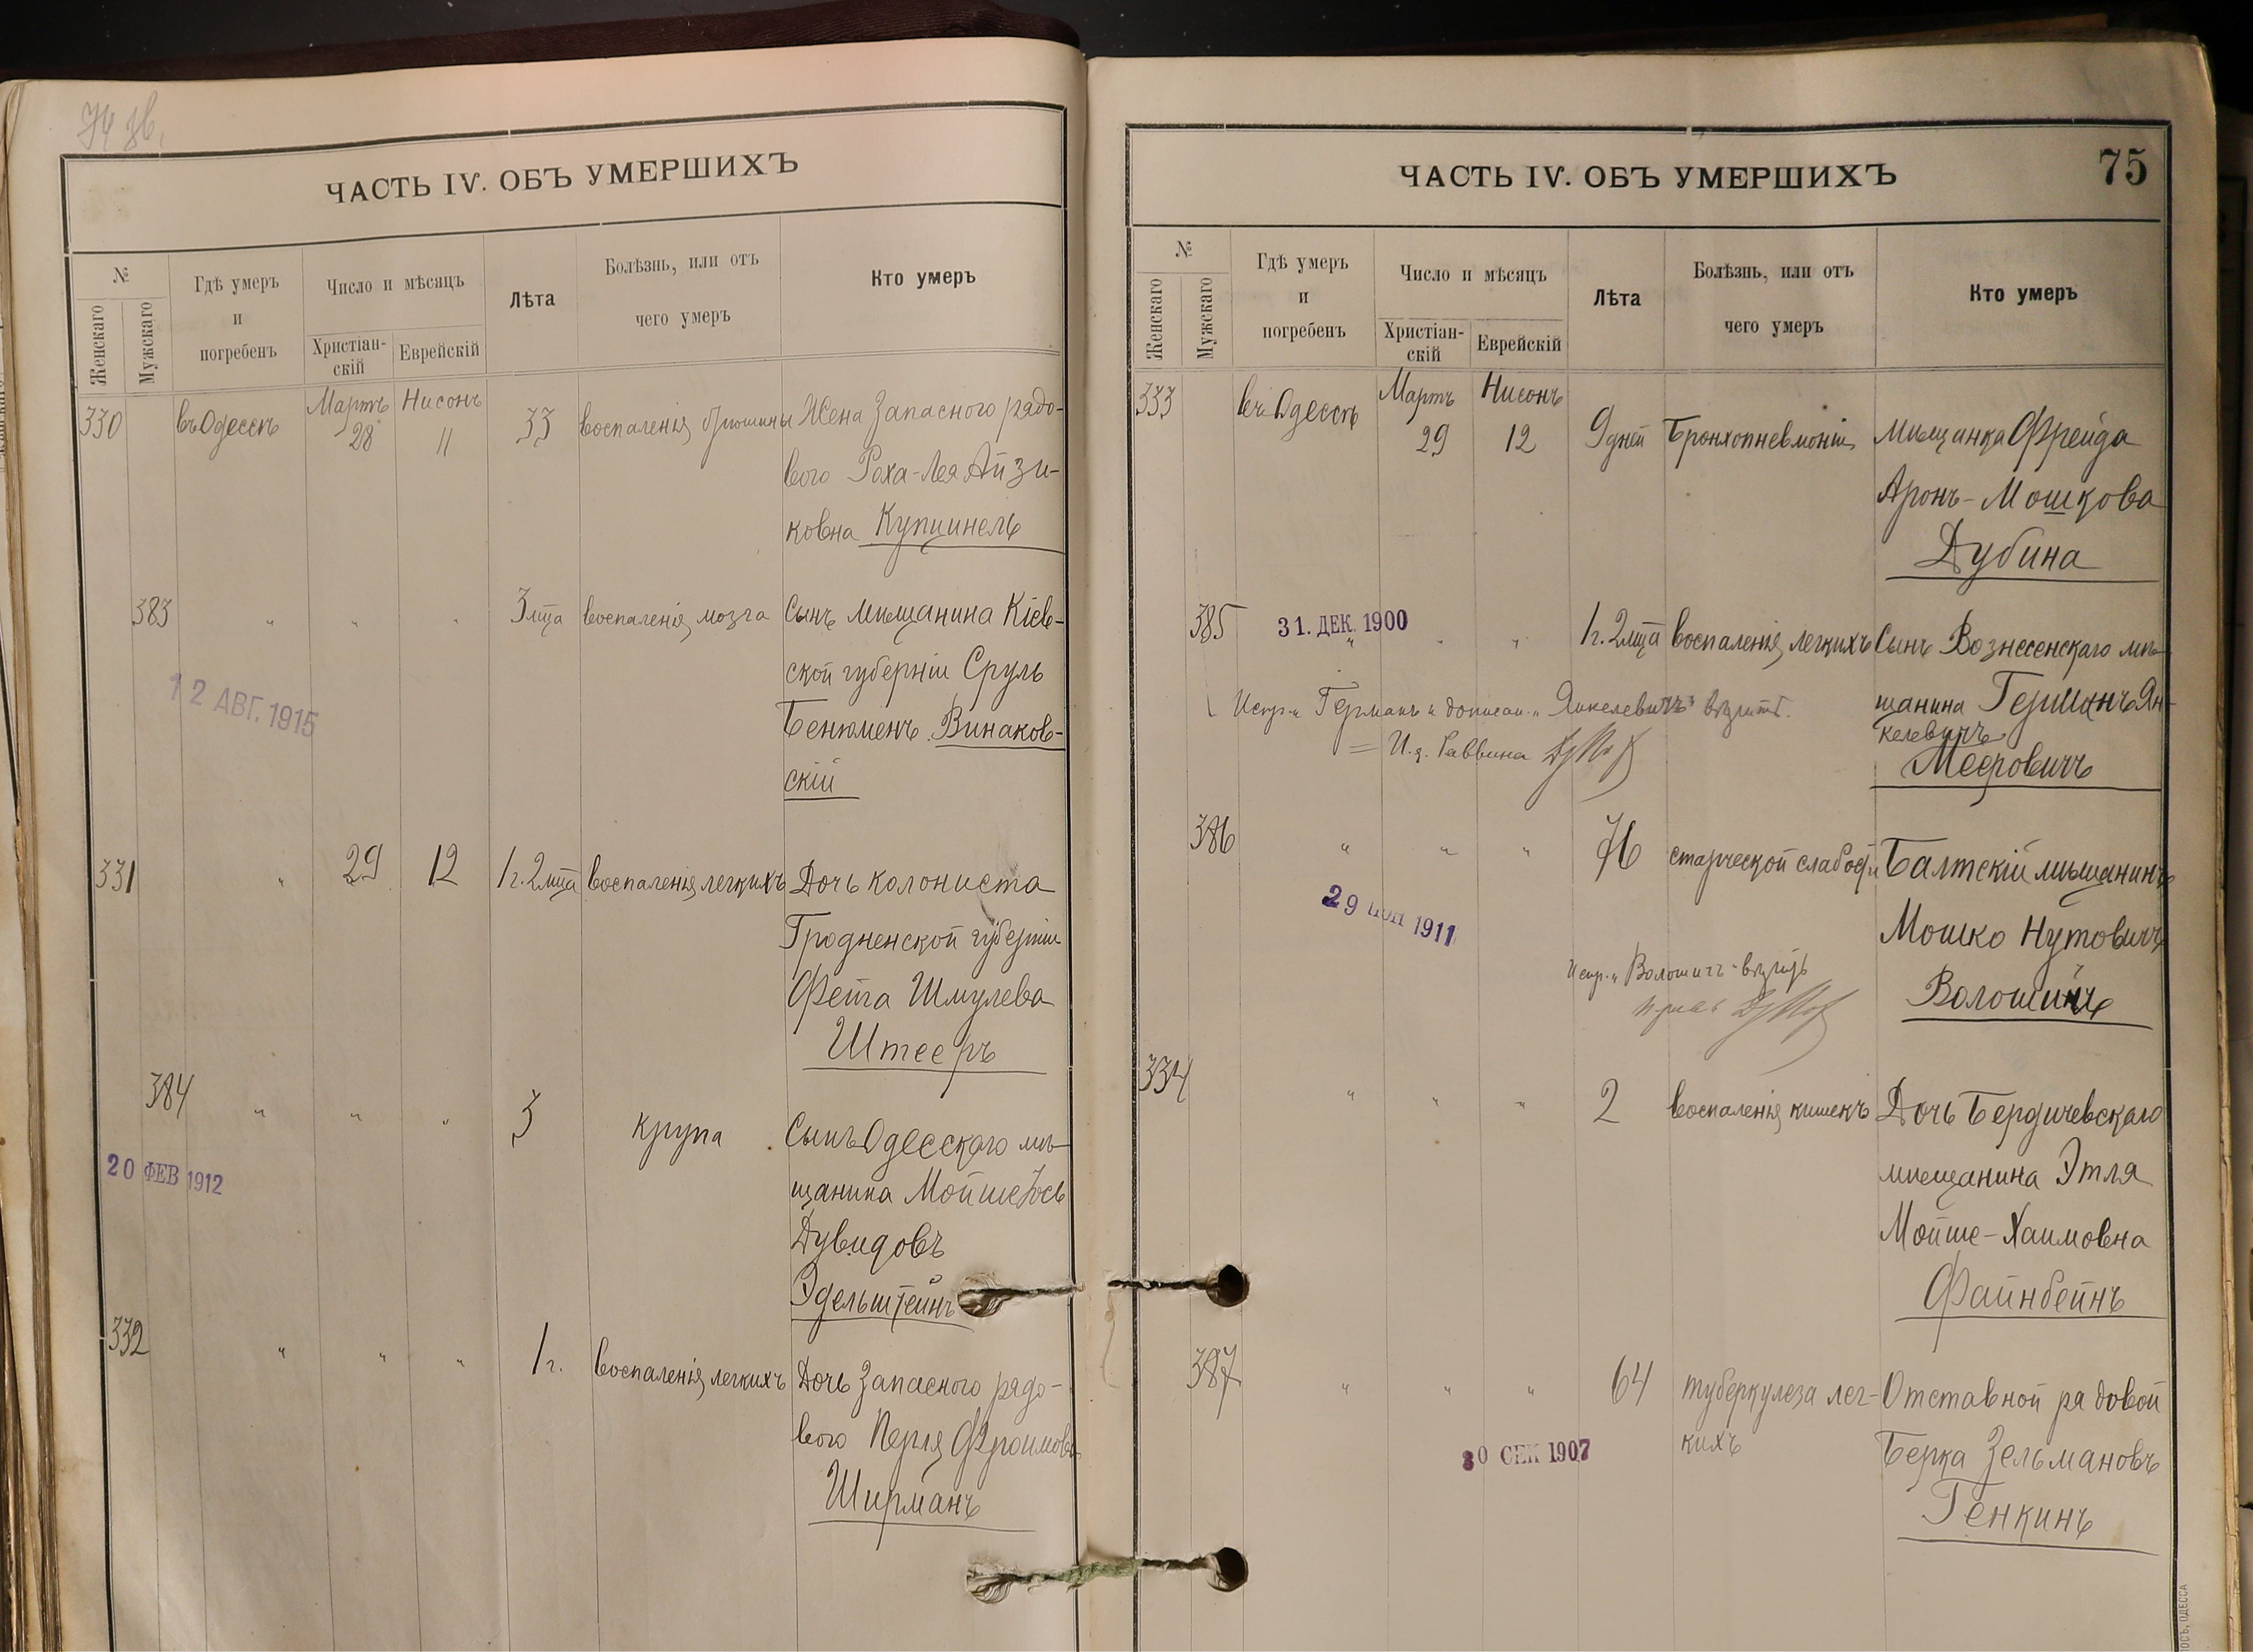 74 об.
ЧАСТЬ IV. ОБЪ УМЕРШИХЪ
№
Женскаго
Мужскаго
Гдѣ умеръ
и
погребенъ
Число и мѣсяцъ
Христіан-
скій
Еврейскій
Лѣта
Болѣзнь, или отъ
чего умеръ
Кто умеръ
330 въ Одессѣ Мартъ 28 Нисонъ 11 33 воспаленія брюшины Жена Запасного рядо-
вого Роха-Лея Айзи-
ковна Купшинель
383 " " " 3 мца воспаленія мозга Сынъ мѣщанина Кіев-
ской губерніи Сруль
12 АВГ. 1915
Бенюменъ Винаков-
скій
331 " 29 12 1 г. 2 мца воспаленія легкихъ Дочь колониста
Гродненской губерніи
Фейга Шмулева
Штееръ
384 " " " 3 крупа Сынъ Одесскаго мѣ-
20 ФЕВ 1912
щанина Мойше Іось
Дувидовъ
Эдельштейнъ
332 " " " 1 г. воспаленія легкихъ Дочь Запасного рядо-
вого Перля Фроимова
Ширманъ
ЧАСТЬ IV. ОБЪ УМЕРШИХЪ
75
№
Женскаго
Мужскаго
Гдѣ умеръ
и
погребенъ
Число и мѣсяцъ
Христіан-
скій
Еврейскій
Лѣта
Болѣзнь, или отъ
чего умеръ
Кто умеръ
333 въ Одессѣ Мартъ 29 Нисонъ 12 9 дней Бронхопневмоніи Мѣщанка Фрейда
Аронъ-Мошкова
Дубина
31. ДЕК. 1900
385 " " " 1 г. 2 мца воспаленія легкихъ Сынъ Вознесенскаго мѣ-
щанина Германъ Ян-
келевичъ
Мееровичъ
Испр. " Германъ и дописан. " Янкелевичъ"
И. д. Раввина
386 " " " 76 старческой слабости Балтскій мѣщанинъ
29 1911
Мошко Нутовичъ
Волошинъ
Испр. " Волошинъ"
334 " " " 2 воспаленія кишекъ Дочь Бердичевскаго
мѣщанина Этля
Мойше-Хаимовна
Файнбейнъ
387 " " " 64 туберкулеза лег-
кихъ
Отставной рядовой
30 СЕН 1907
Берка Зельмановъ
Генкинъ
ОДЕССА